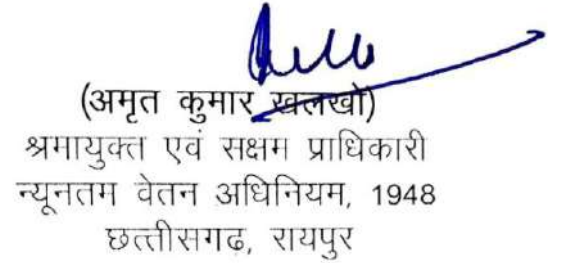 (अमृत कुमार खलखो)
श्रमायुक्त एवं सक्षम प्राधिकारी
न्यूनतम वेतन अधिनियम, 1948
छत्तीसगढ, रायपुर